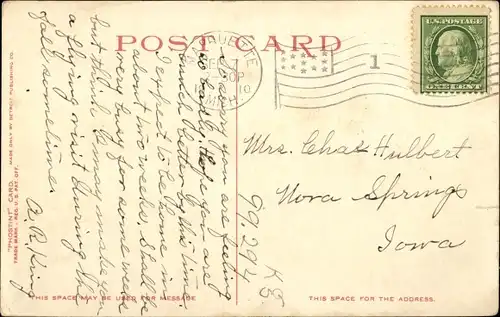 POST CARD
MARQUETTE
MICH.
10
1
U.S. POSTAGE
ONE CENT
you are feeling
so badly. Hope you are
much better by this time.
I expect to be home in
about two weeks. Shall be
very busy for some weeks
but think I may make you
a flying visit during the
fall sometime.
A. R. King
Mrs. Chas Hulbert
Nora Springs
Iowa
99.294
"PHOSTINT" CARD. MADE ONLY BY DETROIT PUBLISHING CO.
TRADE MARK—REG. U.S. PAT. OFF.
THIS SPACE MAY BE USED FOR MESSAGE.
THIS SPACE FOR THE ADDRESS.